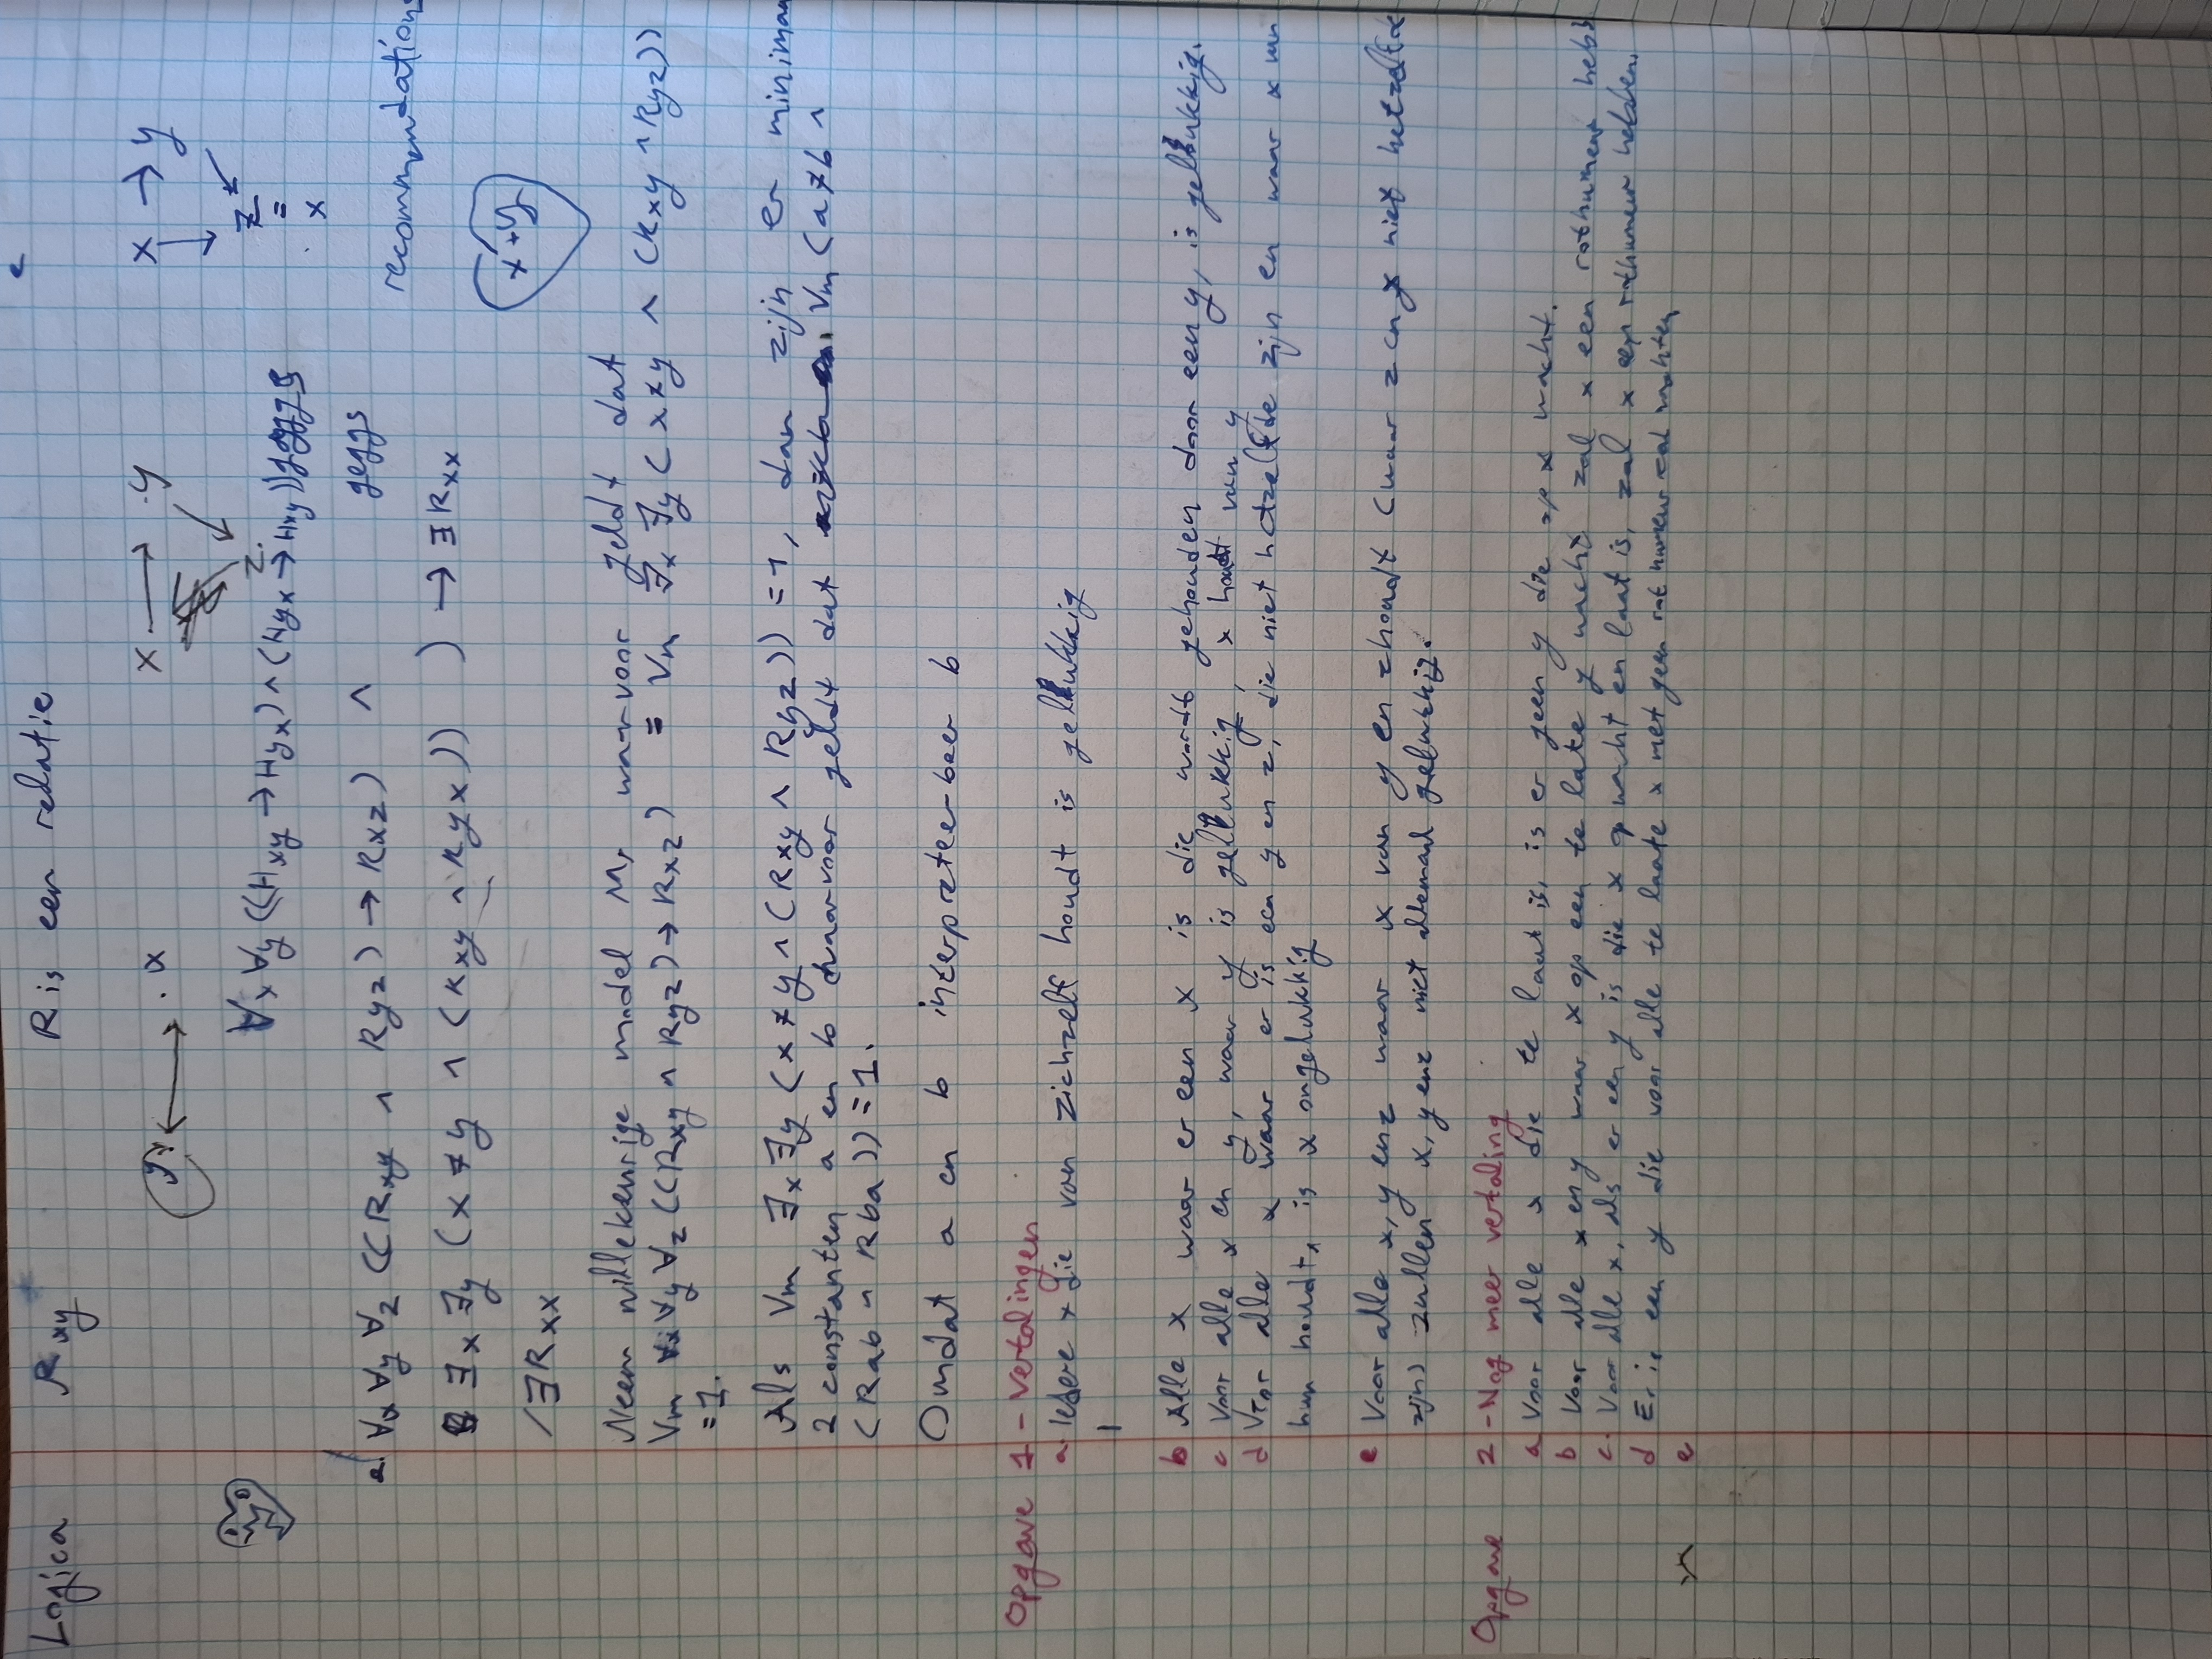 Logica Rxy R is een relatie
y . x x . y x → y
z. z
=
x
∀x ∀y ((Hxy → Hyx) ∧ (Hyx → Hxy))
geggs
a. ∀x ∀y ∀z ((Rxy ∧ Ryz) → Rxz) ∧
recommendations
∃x ∃y (x ≠ y ∧ (Rxy ∧ Ryx)) ) → ∃Rxx
x + y
/∃Rxx
Neem willekeurige model M, warvoor geldt dat
Vm ∀x ∀y ∀z ((Rxy ∧ Ryz) → Rxz) = Vm ∃x ∃y (x ≠ y ∧ (Rxy ∧ Ryz))
= 1.
Als Vm ∃x ∃y (x ≠ y ∧ (Rxy ∧ Ryz)) = 1, dan zijn er minimaa
2 constanten a en b waarvoor geldt dat Vm (a ≠ b ∧
(Rab ∧ Rba)) = 1.
Omdat a en b interpreteerbaar b
Opgave 1 - Vertalingen
a Iedere x die van zichzelf houdt is gelukkig
b Alle x waar er een x is die wordt gehouden door een y, is gelukkig.
c Voor alle x en y, waar y is gelukkig, x houdt van y
d Voor alle x waar er is een y en z, die niet hetzelfde zijn en waar x van
hun houdt, is x ongelukkig
e Voor alle x, y en z waar x van y en z houdt (waar z en y niet hetzelfde
zijn) zullen x, y en z niet allemaal gelukkig.
Opgave 2 - Nog meer vertaling
a Voor alle x die te laat is, is er geen y die op x wacht.
b Voor alle x en y waar x op een te late y wacht zal x een rothumeur hebb
c Voor alle x, als er een y is die x op wacht en laat is, zal x een rothumeur hebben.
d Er is een y die voor alle te laate x met geen rot humeur zal wachten
e